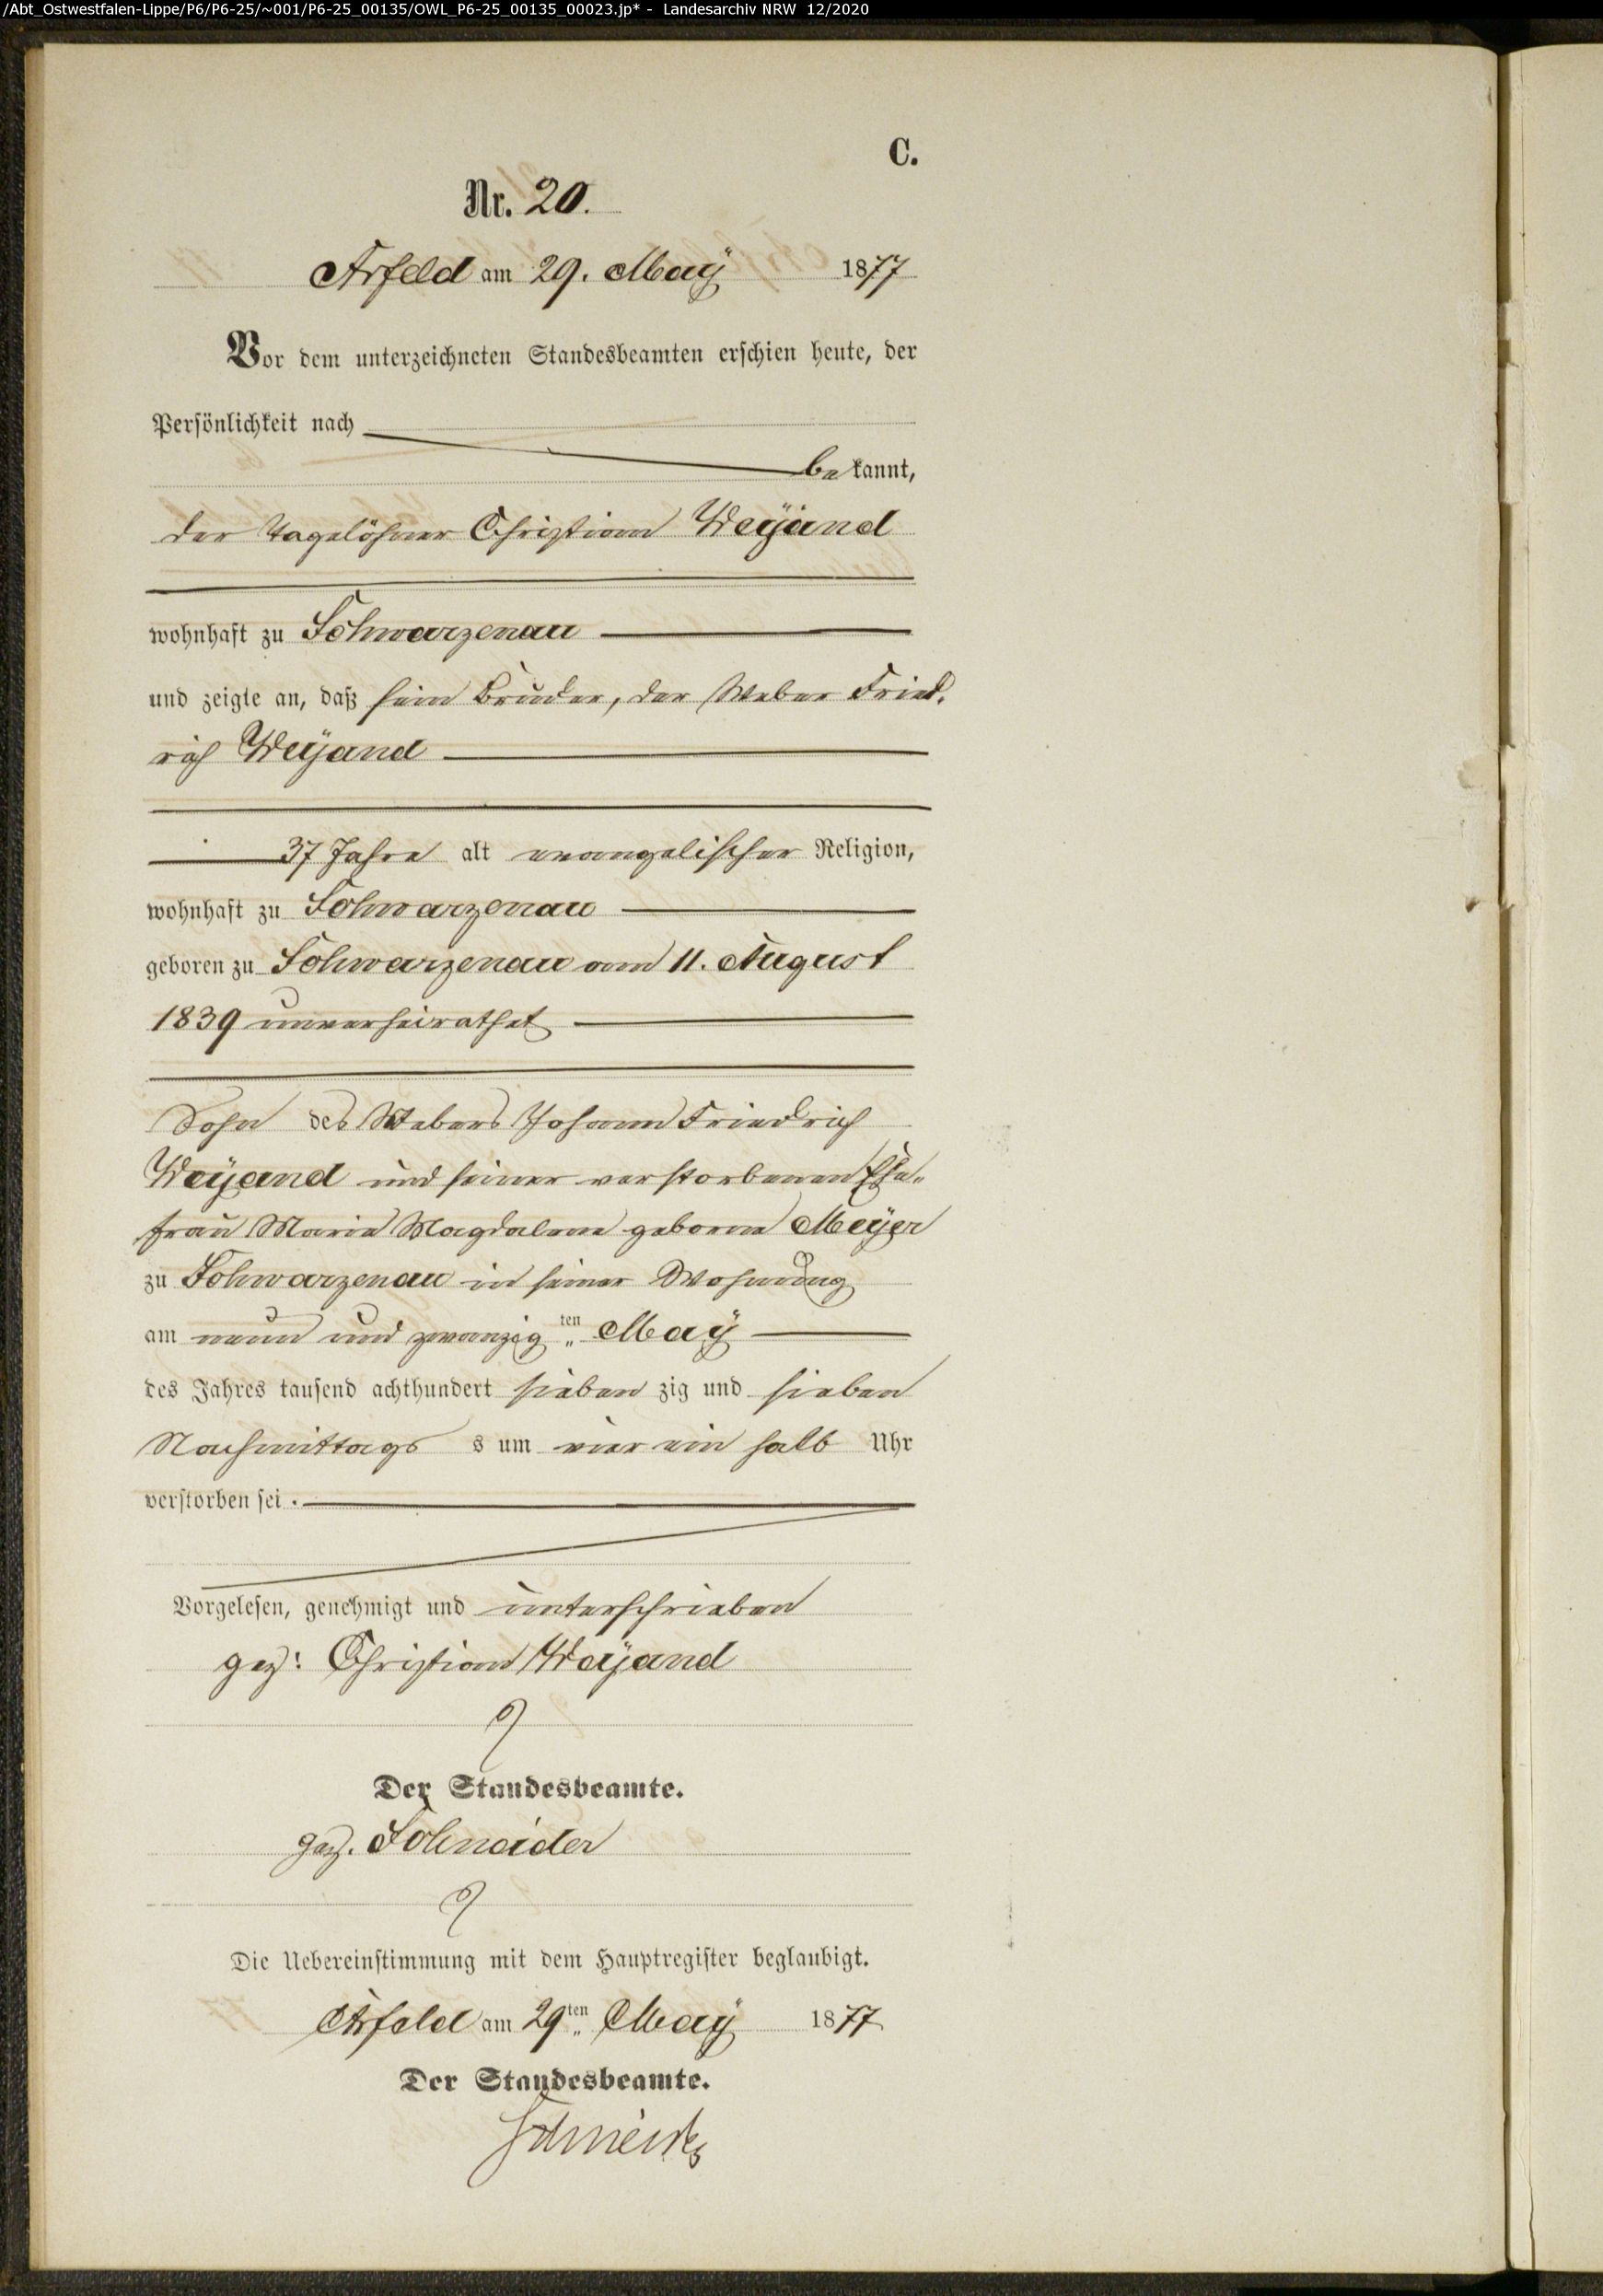 /Abt_Ostwestfalen-Lippe/P6/P6-25/~001/P6-25_00135/OWL_P6-25_00135_00023.jp* - Landesarchiv NRW 12/2020
C.
Nr. 20.
Arfeld am 29. Maÿ 1877
Vor dem unterzeichneten Standesbeamten erschien heute, der
Persönlichkeit nach
bekannt,
der Tagelöhner Christian Weÿand
wohnhaft zu Schwarzenau
und zeigte an, daß sein Bruder, der Weber Fried-
rich Weÿand
37 Jahre alt evangelischer Religion,
wohnhaft zu Schwarzenau
geboren zu Schwarzenau am 11. August
1839 unverheirathet
Sohn des Webers Johann Friedrich
Weÿand und seiner verstorbenen Ehe-
frau Maria Magdalene geborne Meÿer
zu Schwarzenau in seiner Wohnung
am neun und zwanzig ten Maÿ
des Jahres tausend achthundert sieben zig und sieben
Nachmittags s um vier ein halb Uhr
verstorben sei.
Vorgelesen, genehmigt und unterschrieben
gez: Christian Weÿand
Der Standesbeamte.
gez. Schneider
Die Uebereinstimmung mit dem Hauptregister beglaubigt.
Arfeld am 29ten Maÿ 1877
Der Standesbeamte.
Schneider